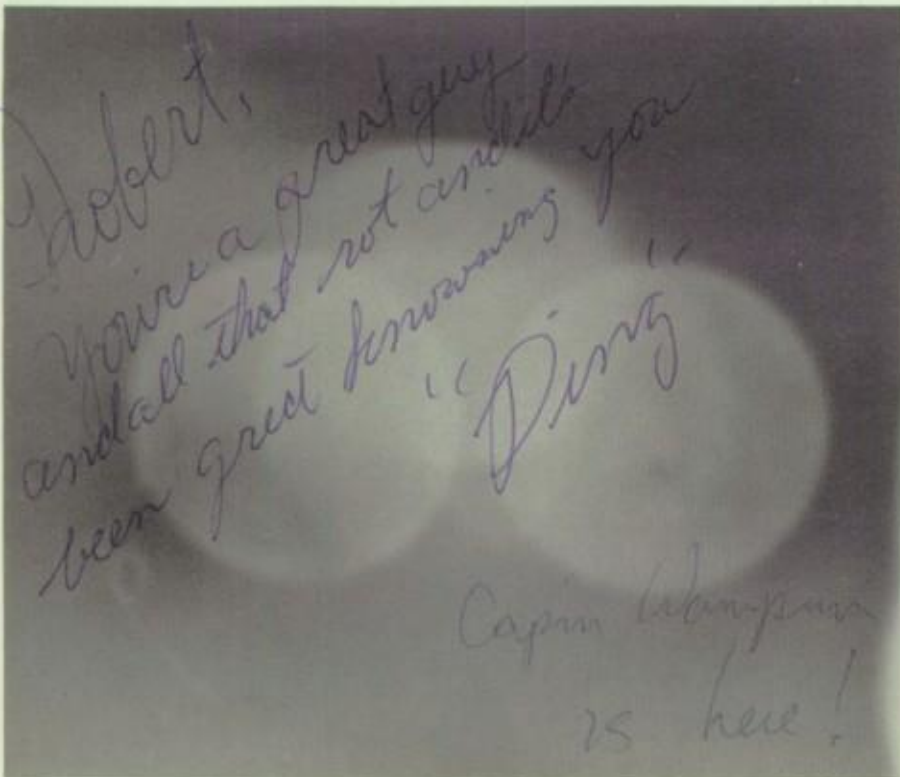 Robert,
You're a great guy
and all that rot and it's
been greet knowing you
"Ding"
Cap'n Wampum
is here!